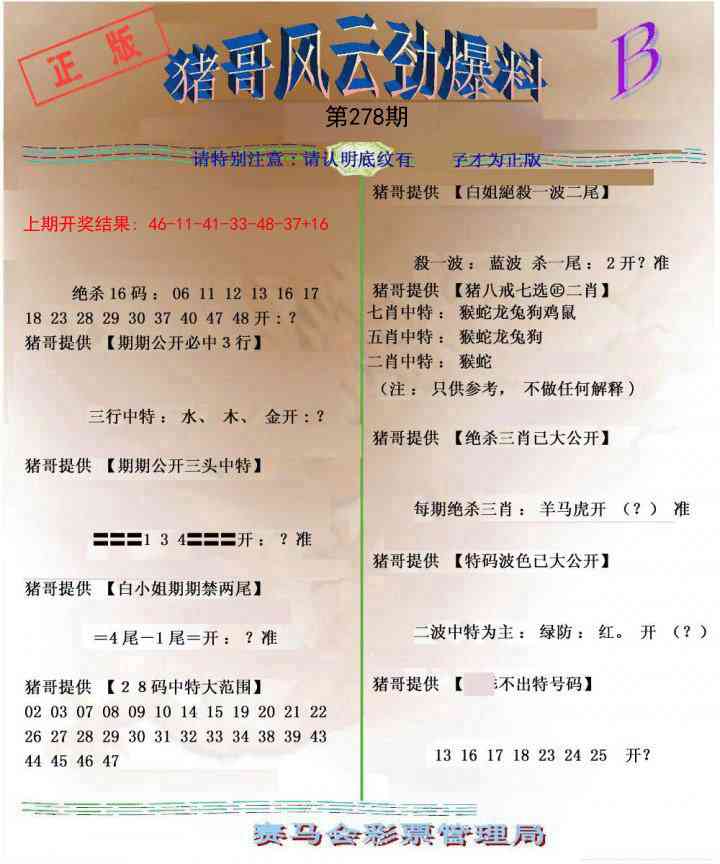 正版
猪哥风云劲爆料
B
第278期
请特别注意:请认明底纹有 字才为正版
上期开奖结果: 46-11-41-33-48-37+16
绝杀16码: 06 11 12 13 16 17
18 23 28 29 30 37 40 47 48开:?
猪哥提供 【期期公开必中3行】
三行中特: 水、 木、 金开:?
猪哥提供 【期期公开三头中特】
〓〓〓1 3 4〓〓〓开: ?准
猪哥提供 【白小姐期期禁两尾】
=4尾-1尾=开: ?准
猪哥提供 【28码中特大范围】
02 03 07 08 09 10 14 15 19 20 21 22
26 27 28 29 30 31 32 33 34 38 39 43
44 45 46 47
猪哥提供 【白姐絕殺一波二尾】
殺一波: 蓝波 杀一尾: 2开?准
猪哥提供 【猪八戒七选㊣二肖】
七肖中特: 猴蛇龙兔狗鸡鼠
五肖中特: 猴蛇龙兔狗
二肖中特: 猴蛇
(注: 只供参考, 不做任何解释)
猪哥提供 【绝杀三肖已大公开】
每期绝杀三肖: 羊马虎开 (?) 准
猪哥提供 【特码波色已大公开】
二波中特为主: 绿防: 红。 开 (?)
猪哥提供 【 不出特号码】
13 16 17 18 23 24 25 开?
赛马会彩票管理局